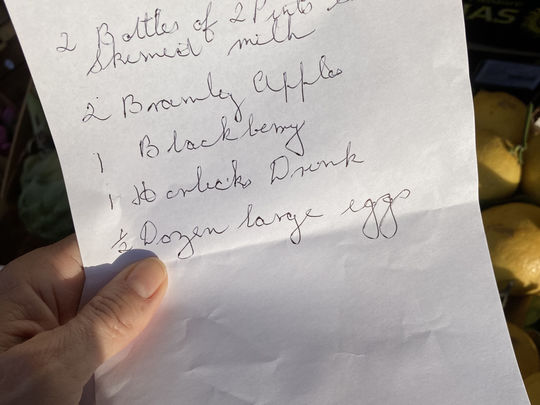 2 Bottles of 2 Pints
Skemied milk
2 Bramley Apples
1 Blackberry
1 Horlicks Drink
½ Dozen large eggs